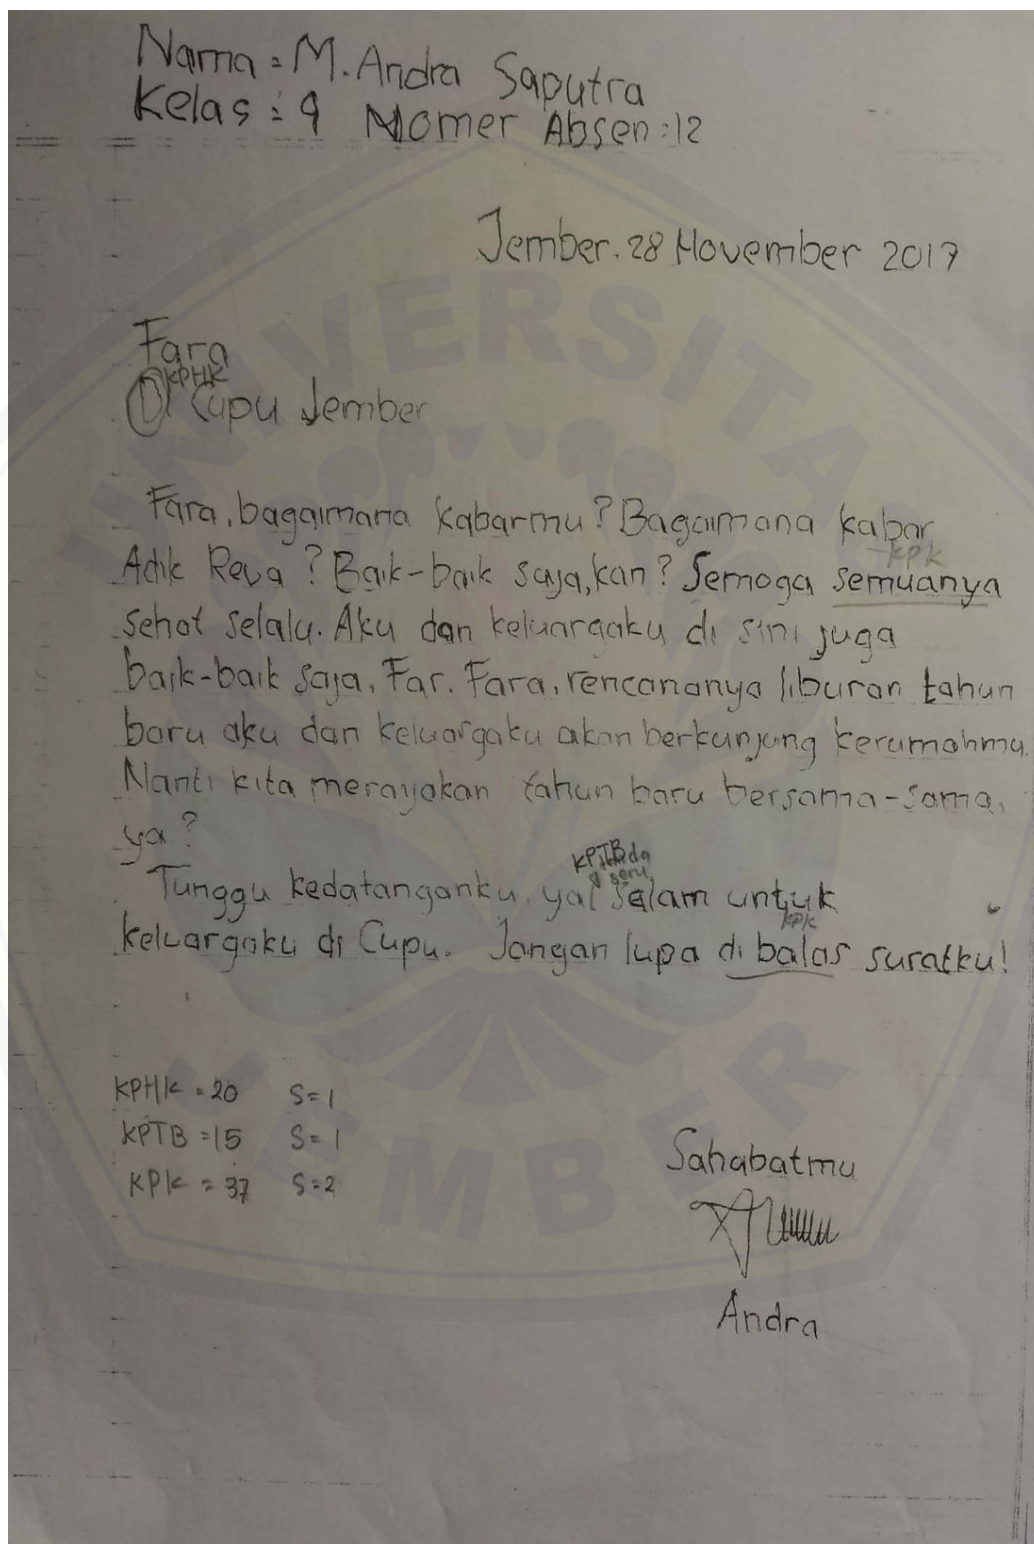 Nama = M. Andra Saputra
Kelas = 4 Nomer Absen : 12
Jember, 28 November 2017
Fara
KPHK
Di Cupu Jember
Fara, bagaimana kabarmu? Bagaimana kabar
KPK
Adik Reva? Baik-baik saja, kan? Semoga semuanya
sehat selalu. Aku dan keluargaku di sini juga
baik-baik saja, Far. Fara, rencananya liburan tahun
baru aku dan keluargaku akan berkunjung kerumahmu.
Nanti kita merayakan tahun baru bersama-sama,
ya?
KPTB
Tunggu kedatanganku, ya! Salam untuk
KPK
keluargaku di Cupu. Jangan lupa di balas suratku!
KPHK = 20 S = 1
KPTB = 15 S = 1
KPK = 37 S = 2
Sahabatmu
Andra
UNIVERSITAS
JEMBER